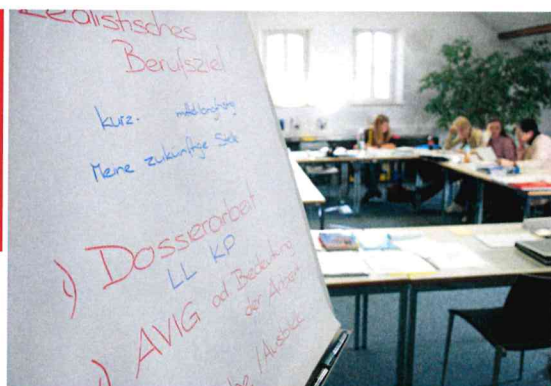 Realistisches
Berufsziel
kurz. mittellangfristig
Meine zukünftige Stelle
) Dossierarbeit
LL KP
) AVIG od Bedeutung
der Arbeit
/Ausblick